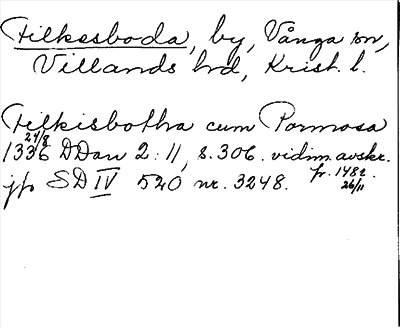 Filkesboda, by, Vånga sn,
Villands hrd, Krist. l.
Felkisbotha cum Pormosa
24/8
1336 DDan 2:11, s. 306. vidim. avskr.
fr. 1482
26/11.
jfr SD IV 520 nr. 3248.